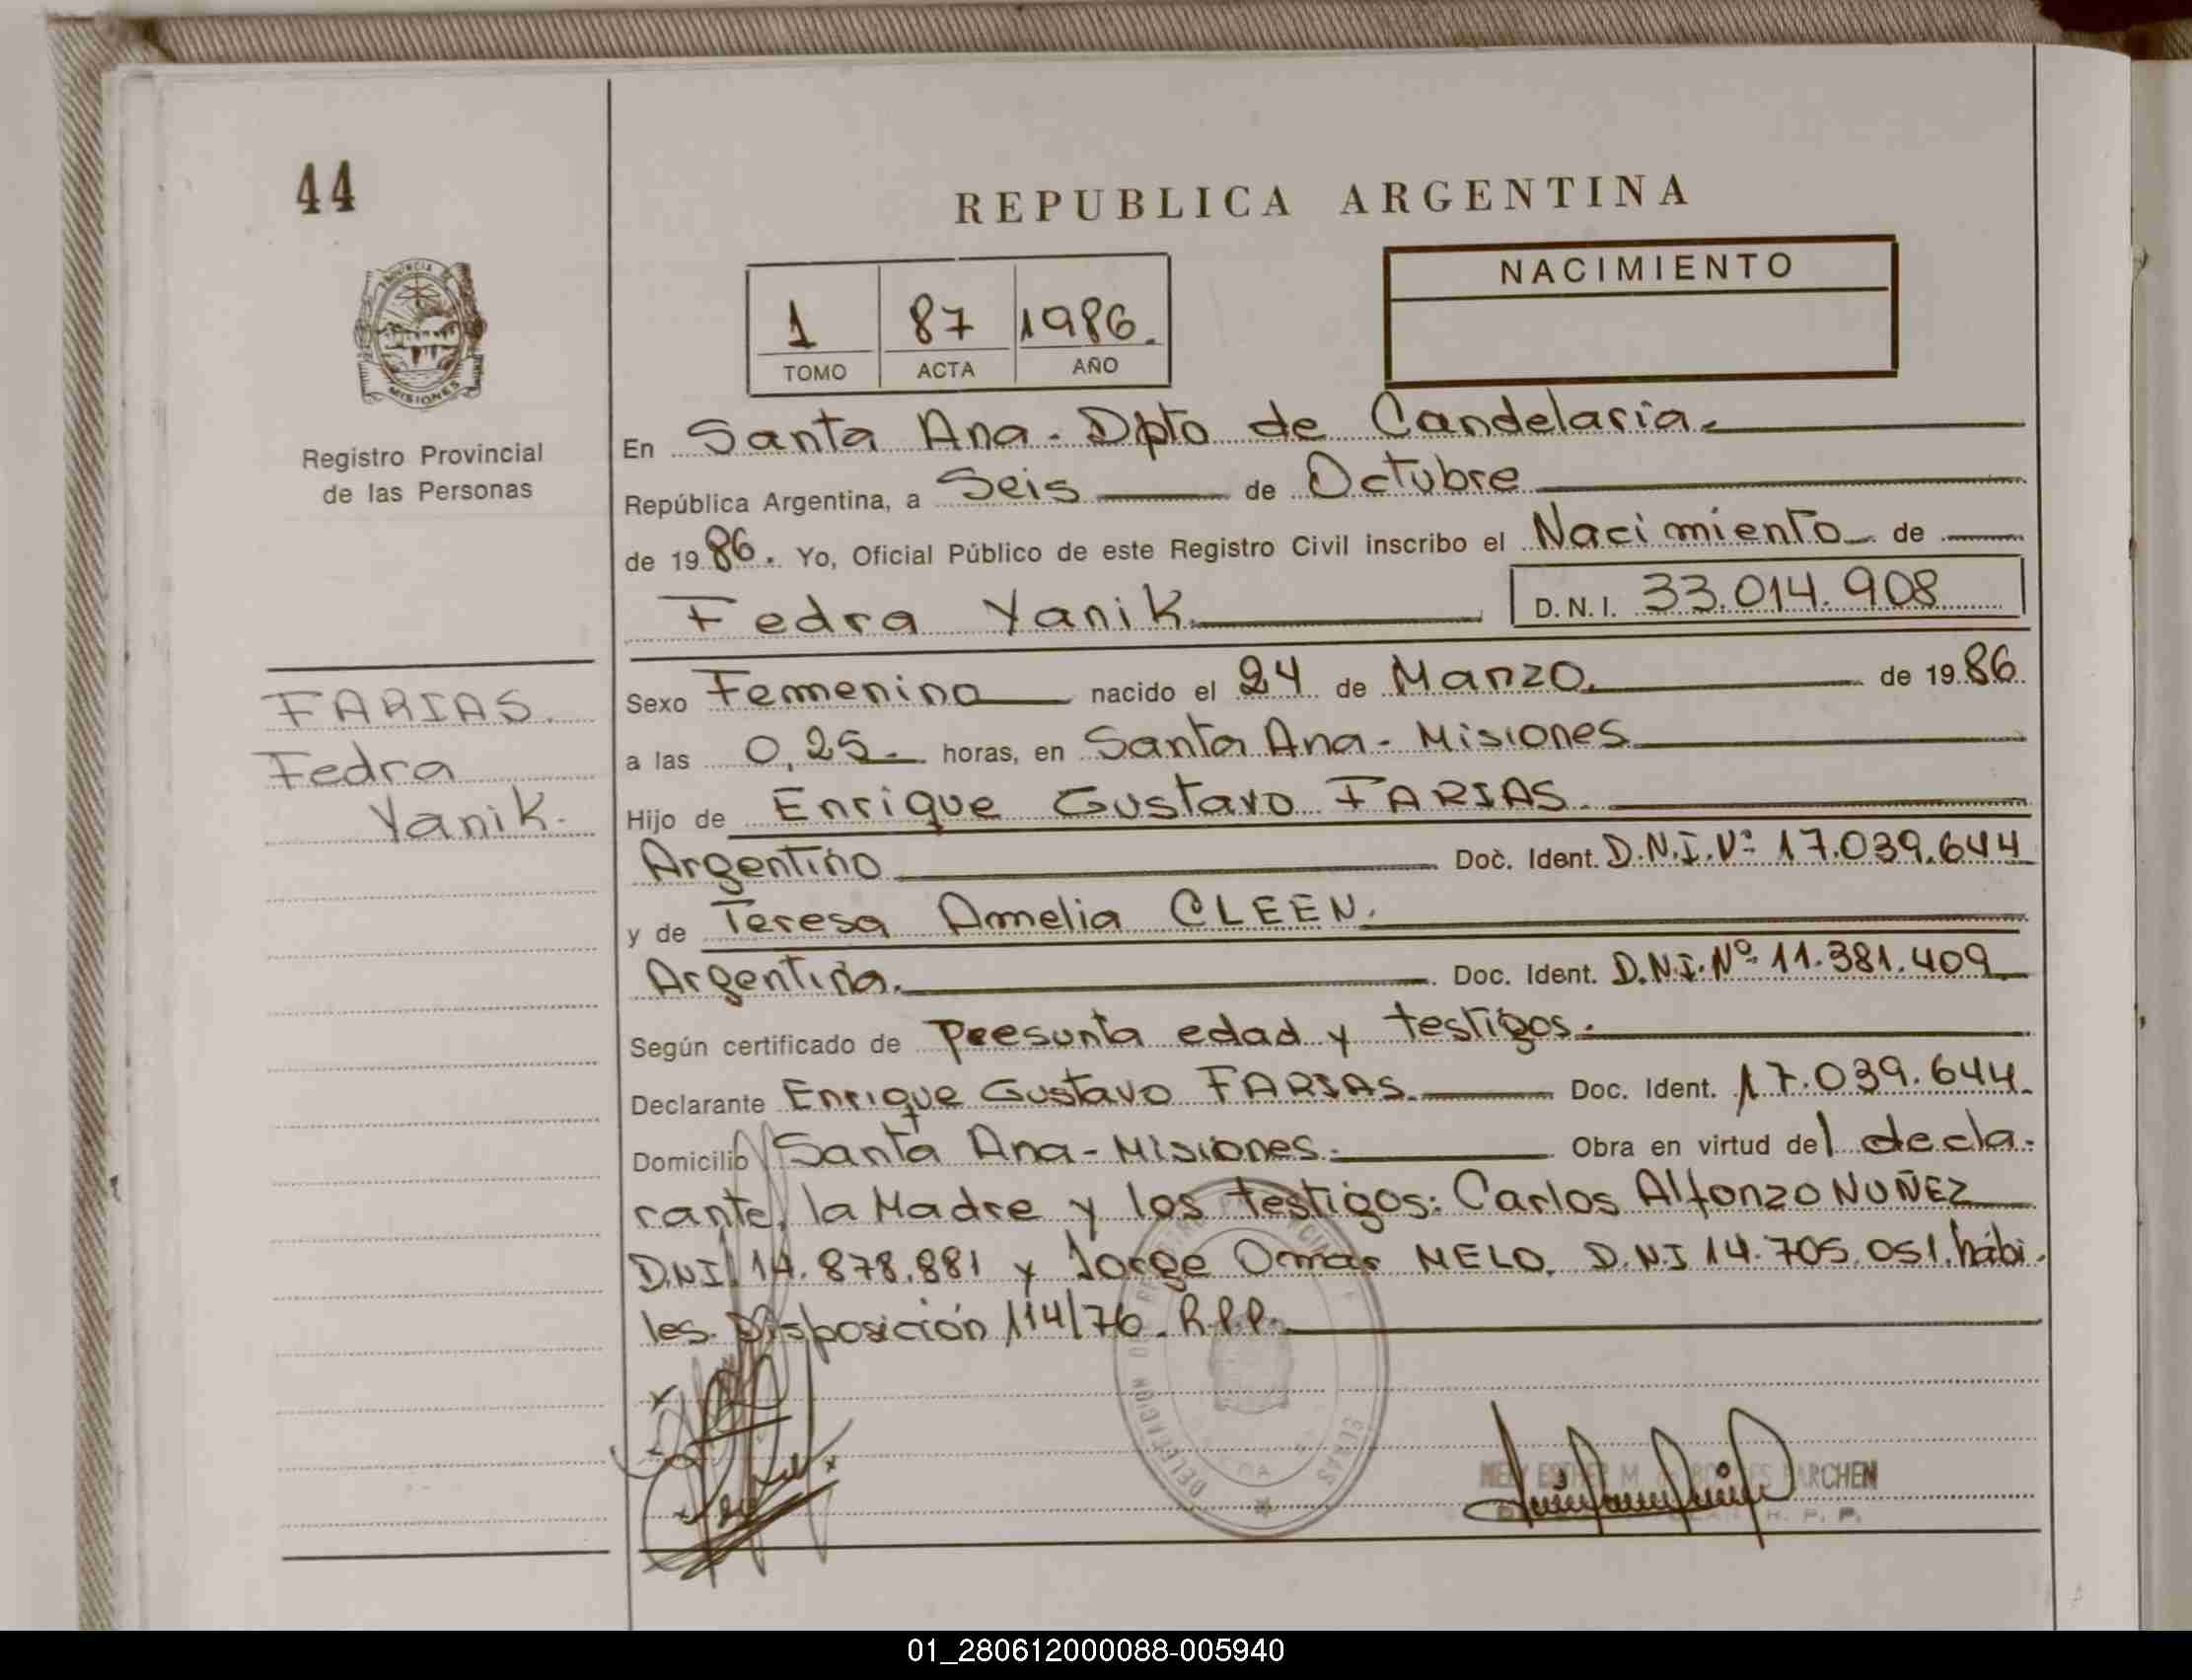 44
REPUBLICA ARGENTINA
PROVINCIA DE
MISIONES
Registro Provincial
de las Personas
NACIMIENTO
1 87 1986.
TOMO ACTA AÑO
En Santa Ana - Dpto de Candelaria.
República Argentina, a Seis de Octubre
de 1986. Yo, Oficial Público de este Registro Civil inscribo el Nacimiento de
Fedra Yanik. D.N.I. 33.014.908
FARIAS.
Fedra
Yanik.
Sexo Femenino nacido el 24 de Marzo. de 1986.
a las 0,25 horas, en Santa Ana - Misiones
Hijo de Enrique Gustavo FARIAS.
Argentino Doc. Ident. D.N.I.Nº 17.039.644
y de Teresa Amelia CLEEN.
Argentina. Doc. Ident. D.N.I.Nº 11.381.409
Según certificado de Presunta edad y testigos.
Declarante Enrique Gustavo FARIAS. Doc. Ident. 17.039.644.
Domicilio Santa Ana - Misiones. Obra en virtud del decla-
rante, la Madre y los testigos: Carlos Alfonzo NUÑEZ
D.N.I. 14.878.881 y Jorge Omar MELO. D.N.I 14.705.051. hábi-
les. Disposición 114/76. R.P.P.
DELEGACION
ARCHEN
R. P. P.
01_280612000088-005940